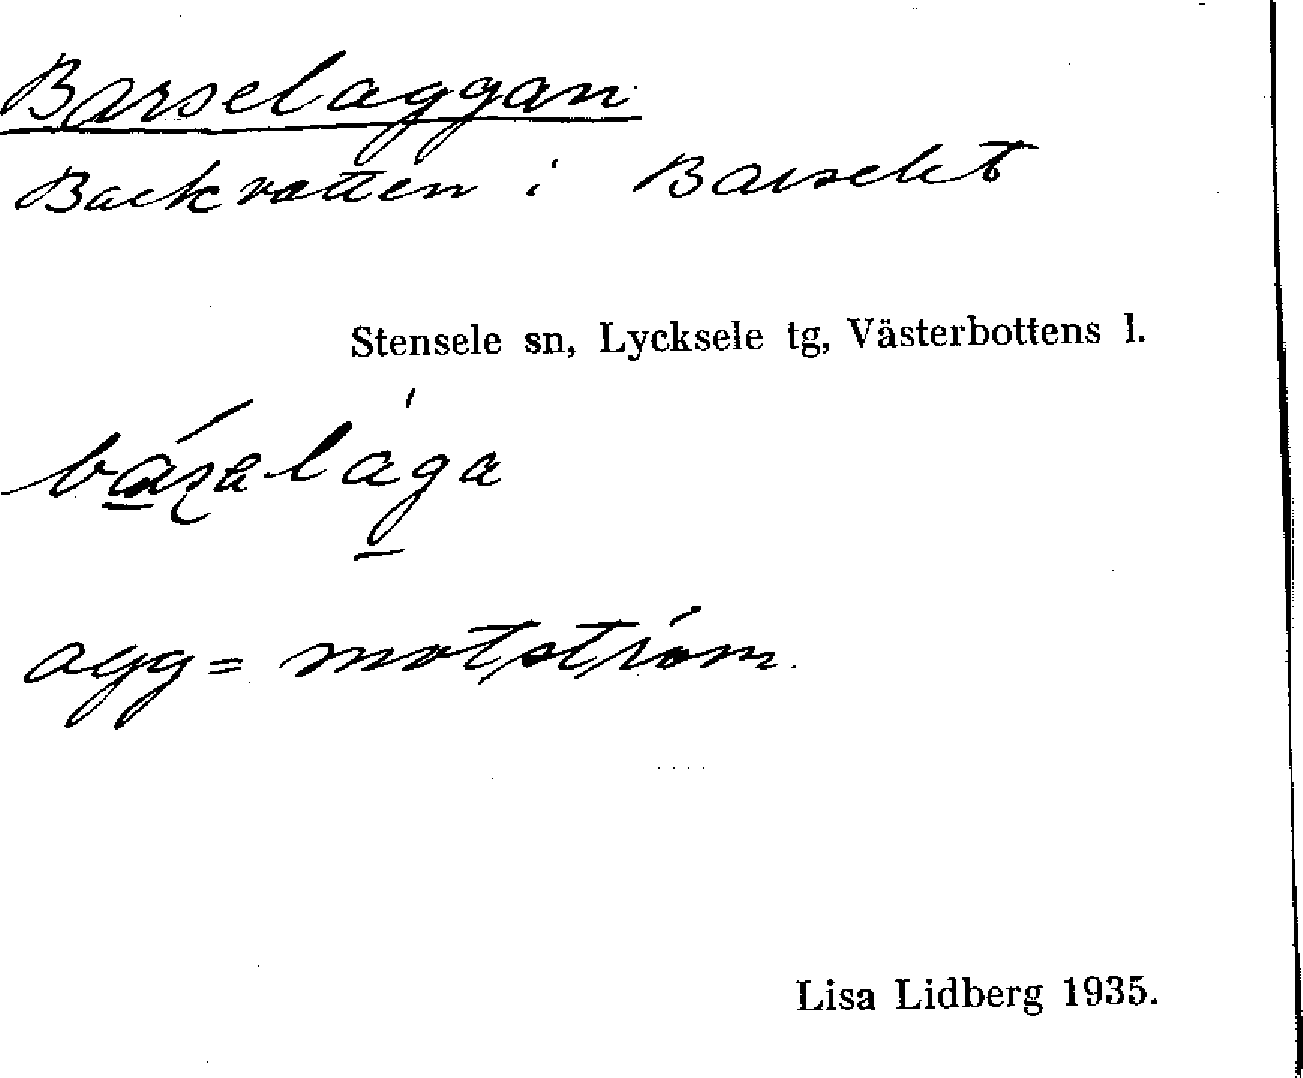 Barselaggan
Backvatten i Barselet
Stensele sn, Lycksele tg, Västerbottens l.
agg = motström.
Lisa Lidberg 1935.